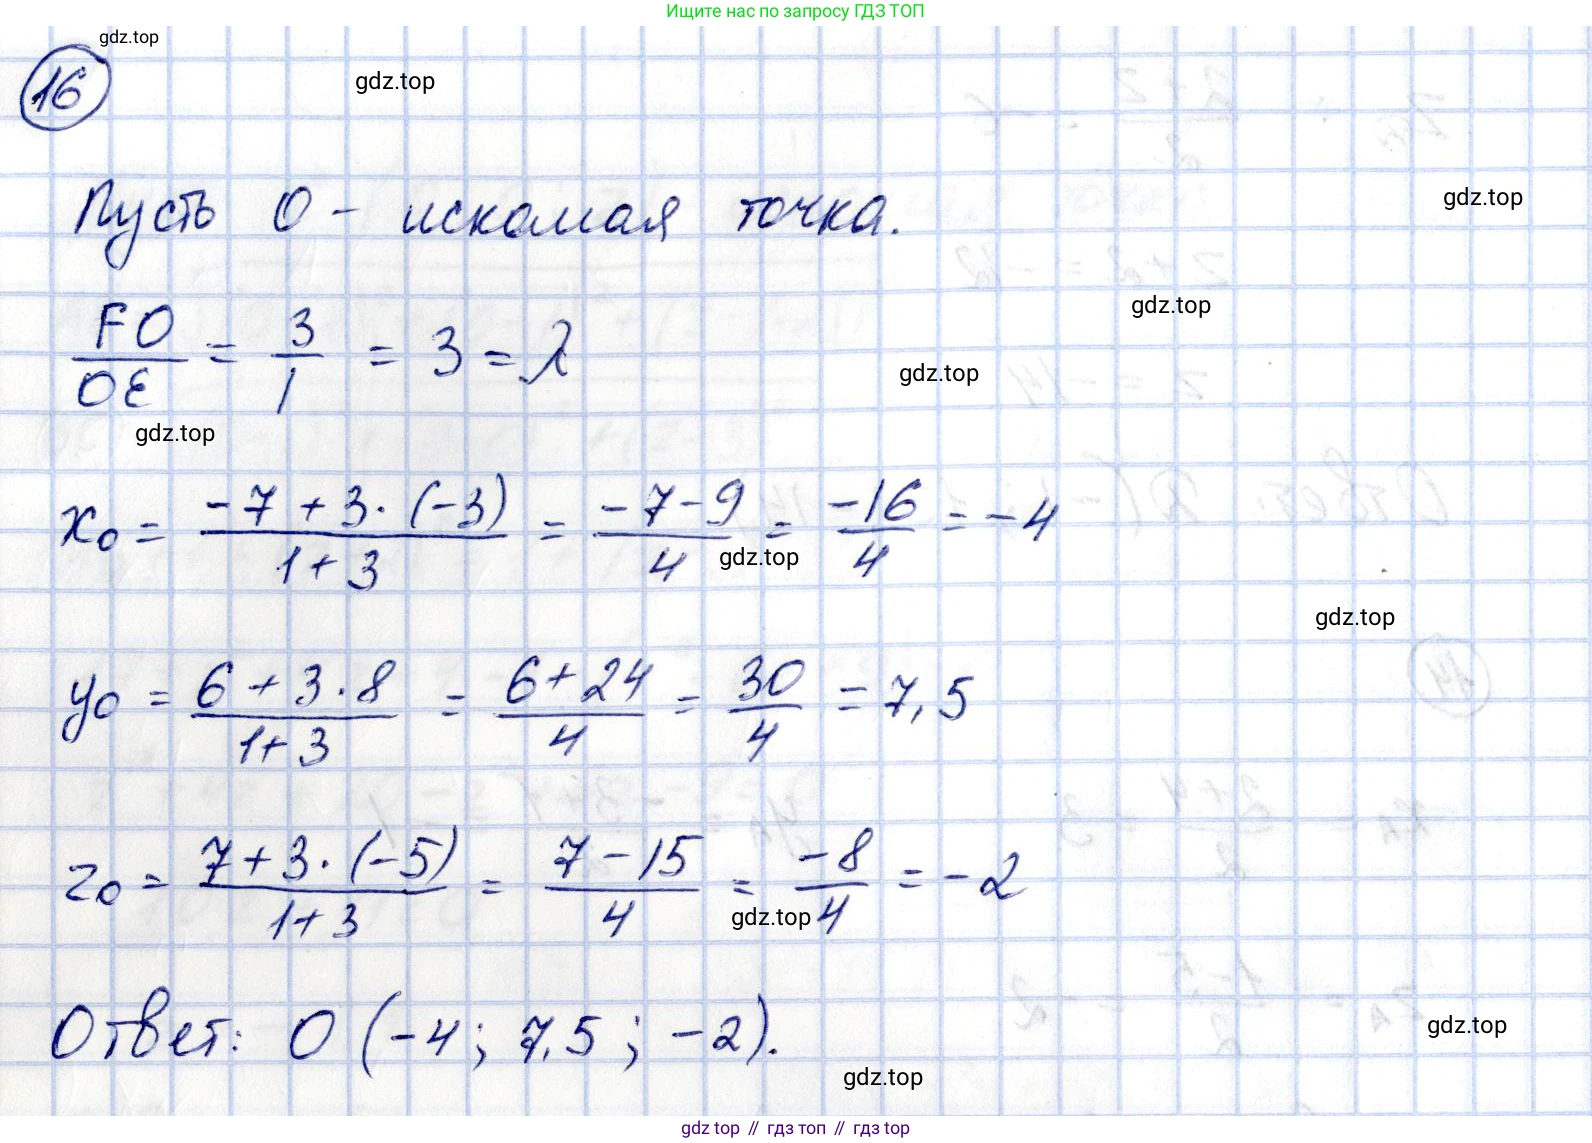 Ищите нас по запросу ГДЗ ТОП
gdz.top
16
gdz.top
gdz.top
Пусть O - искомая точка.
gdz.top
FO/OE = 3/1 = 3 = λ
gdz.top
gdz.top
x₀ = (-7 + 3·(-3))/(1+3) = (-7-9)/4 = -16/4 = -4
gdz.top
gdz.top
y₀ = (6+3·8)/(1+3) = (6+24)/4 = 30/4 = 7,5
z₀ = (7+3·(-5))/(1+3) = (7-15)/4 = -8/4 = -2
gdz.top
Ответ: O (-4; 7,5; -2).
gdz.top
gdz.top
gdz top // гдз топ // гдз top